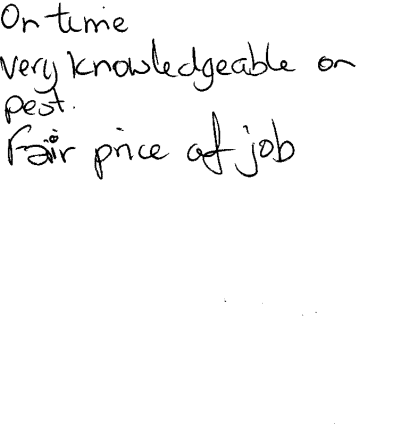 On time
very knowledgeable on
pest.
Fair price of job